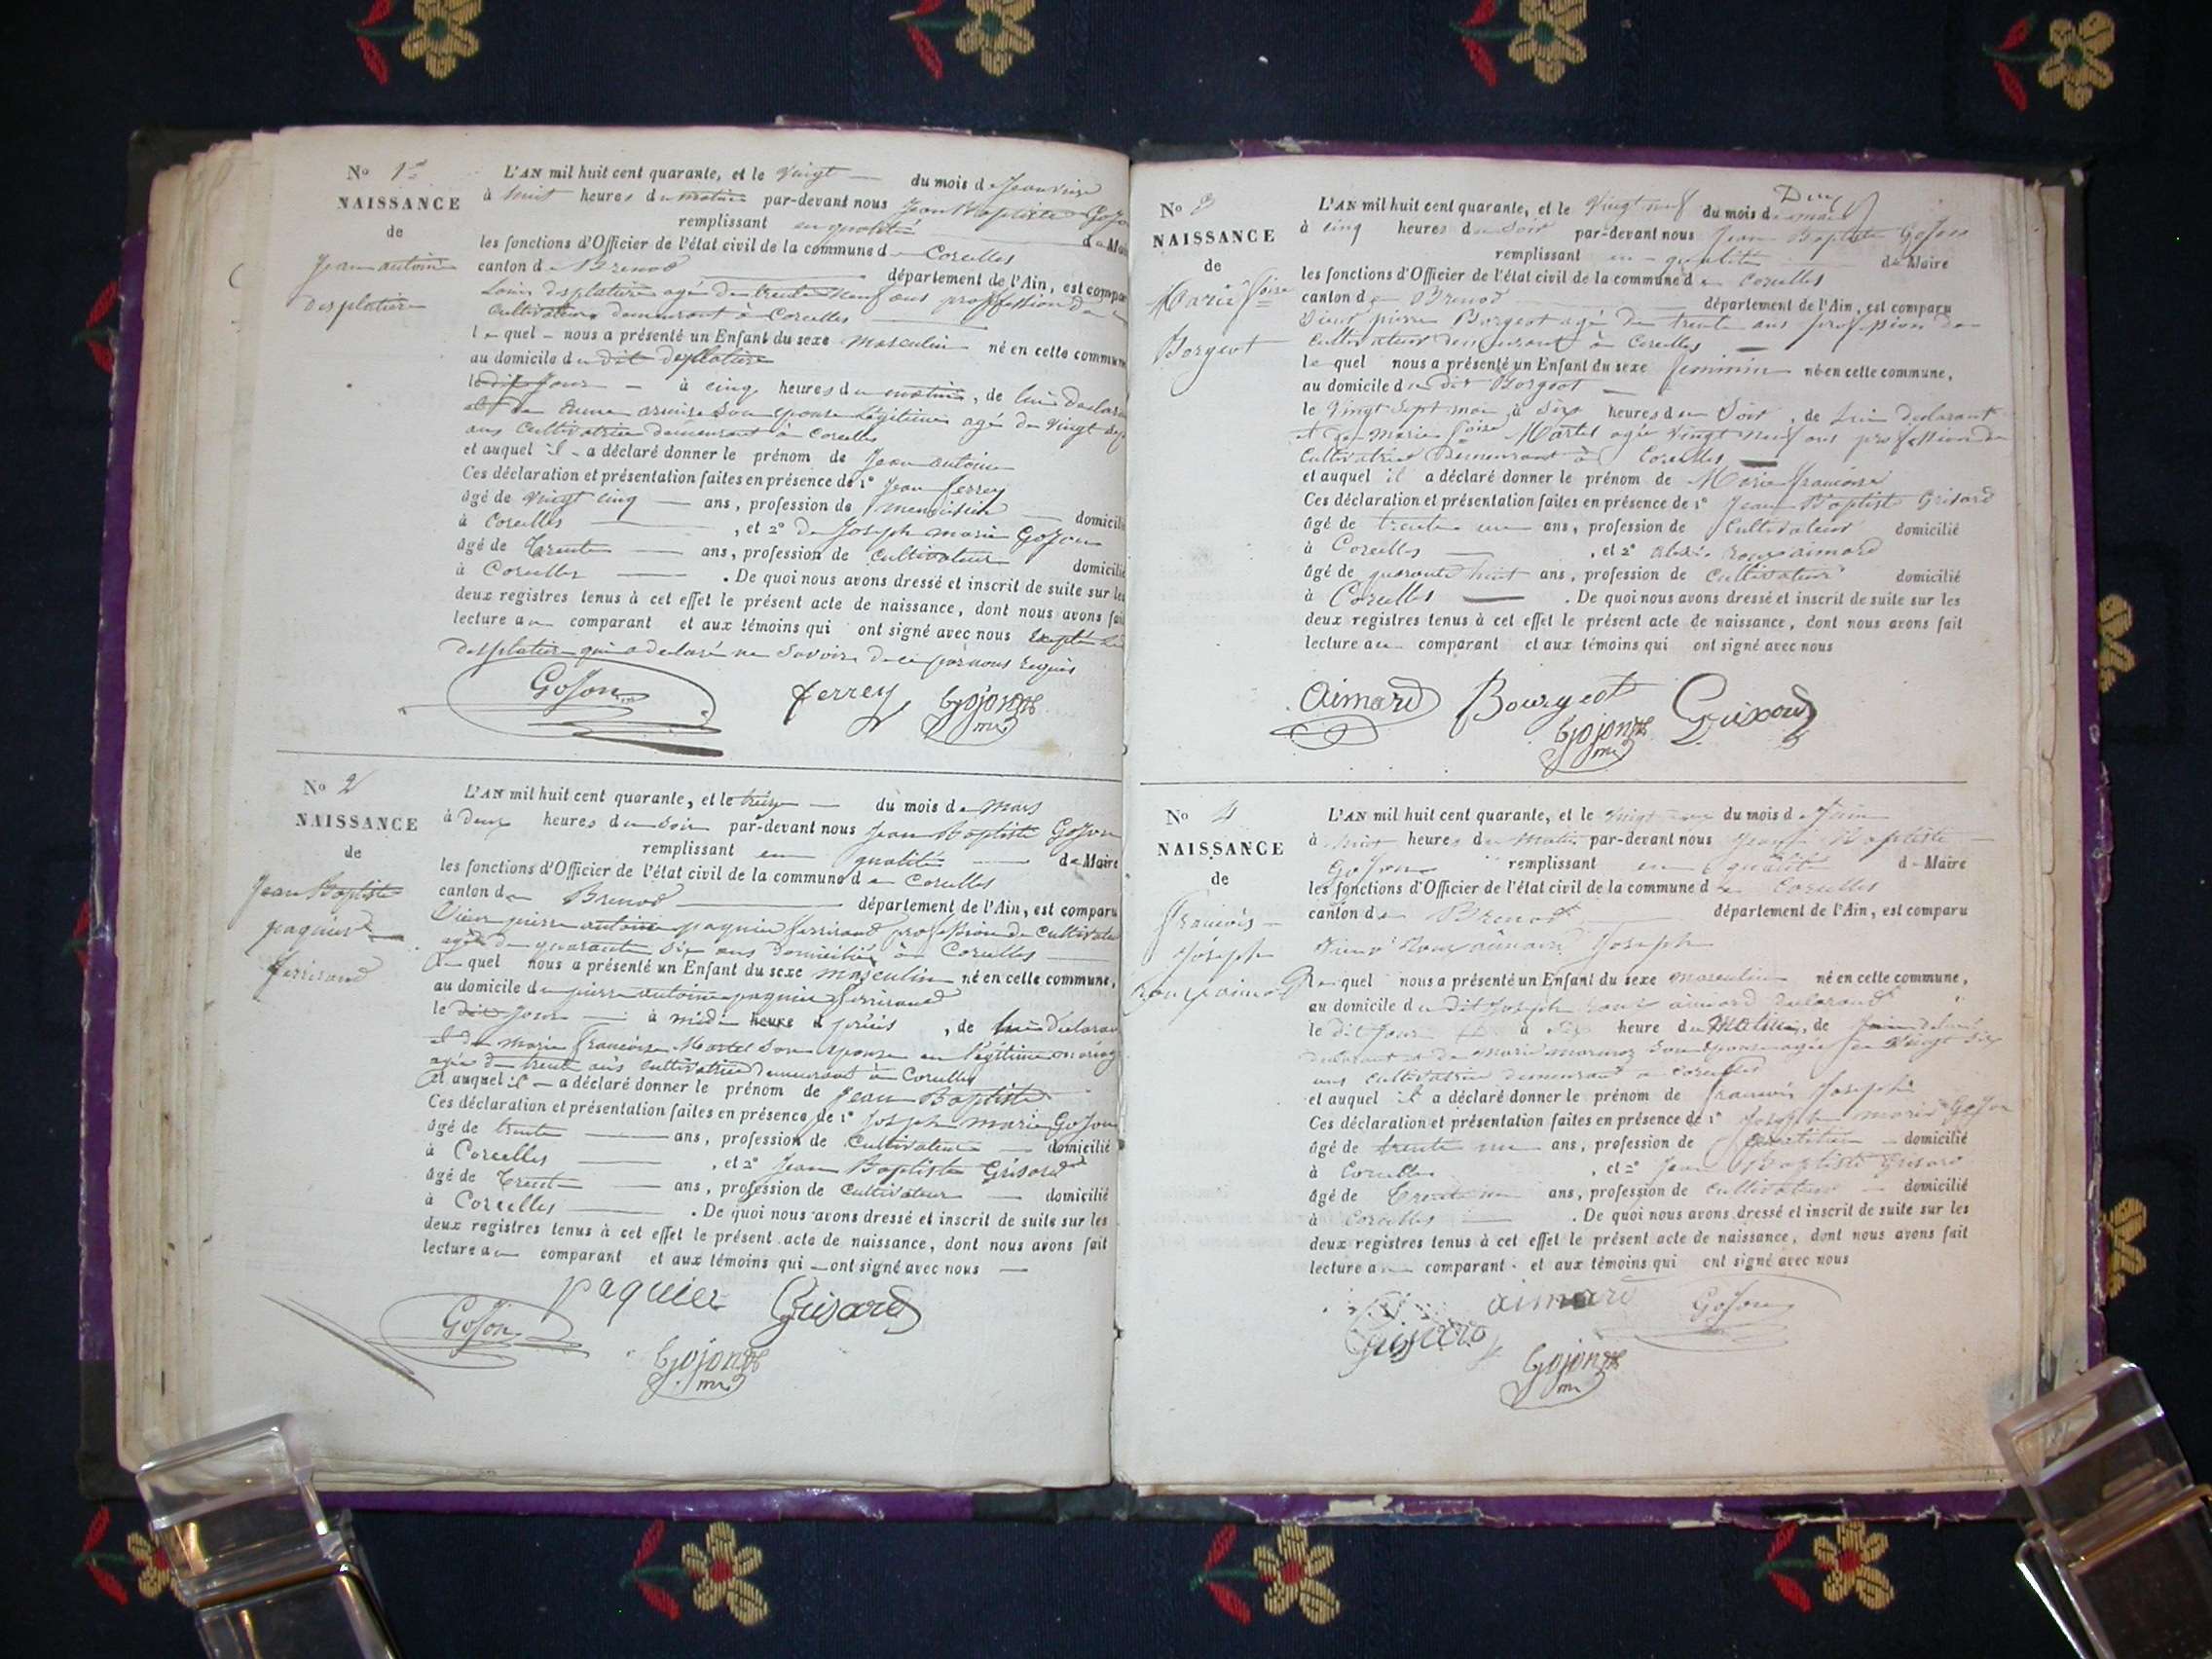 No 1er
NAISSANCE
de
Jean antoine
Desplatire
L'AN mil huit cent quarante, et le vingt du mois de Janvier
à huit heures du matin par-devant nous Jean Baptiste Gojon
remplissant en qualité de Maire
les fonctions d'Officier de l'état civil de la commune de Corcelles
canton de Brenod département de l'Ain, est comparu
Louis desplatire agé de trente neuf ans proffession de
Cultivateur demeurant à Corcelles
lequel nous a présenté un Enfant du sexe masculin né en cette commune
au domicile du dit desplatire
le dit jour à cinq heures du matin, de lui declarant
et de son epouse légitime agé de vingt sept
ans Cultivatrice demeurant à Corcelles
et auquel il a déclaré donner le prénom de Jean antoine
Ces déclaration et présentation faites en présence de 1° Jean ferrey
âgé de vingt cinq ans, profession de menuisier domicilié
à Corcelles, et 2° de Joseph marie Gojon
âgé de Trente ans, profession de cultivateur domicilié
à Corcelles. De quoi nous avons dressé et inscrit de suite sur les
deux registres tenus à cet effet le présent acte de naissance, dont nous avons fait
lecture au comparant et aux témoins qui ont signé avec nous
Desplatire qui a declaré ne Savoir de ce par nous Requis
Gojon ferrey Gojon
No 2
NAISSANCE
de
Jean Baptiste
paquier
ferriraud
L'AN mil huit cent quarante, et le treize du mois de Mars
à deux heures du soir par-devant nous Jean Baptiste Gojon
remplissant en qualité de Maire
les fonctions d'Officier de l'état civil de la commune de Corcelles
canton de Brenod département de l'Ain, est comparu
pierre antoine paquier ferriraud profession de Cultivateur
agé de quarante six ans domicilié à Corcelles
Lequel nous a présenté un Enfant du sexe masculin né en cette commune,
au domicile du pierre antoine paquier ferriraud
le dit jour à midi heure précis, de lui declarant
et de marie francoise Martel Son epouse en légitime mariage
agée de trente ans cultivatrice demeurant à Corcelles
et auquel il a déclaré donner le prénom de Jean Baptiste
Ces déclaration et présentation faites en présence de 1° Joseph marie Gojon
âgé de trente ans, profession de Cultivateur domicilié
à Corcelles, et 2° Jean Baptiste Grisard
âgé de Trente ans, profession de cultivateur domicilié
à Corcelles. De quoi nous avons dressé et inscrit de suite sur les
deux registres tenus à cet effet le présent acte de naissance, dont nous avons fait
lecture au comparant et aux témoins qui ont signé avec nous
paquier Grisard
Gojon
Gojon
No 3
NAISSANCE
de
Marie
Borgeot
L'AN mil huit cent quarante, et le vingt neuf du mois de mars
à cinq heures du soir par-devant nous Jean Baptiste Gojon
remplissant en qualité de Maire
les fonctions d'Officier de l'état civil de la commune de Corcelles
canton de Brenod département de l'Ain, est comparu
pierre Borgeot agé de trente ans profession de
Cultivateur demeurant à Corcelles
lequel nous a présenté un Enfant du sexe feminin né en cette commune,
au domicile du dit Borgeot
le vingt Sept mai à Six heures du Soir, de Lui declarant
et de Marie Martel agée vingt neuf ans profession de
Cultivatrice Demeurant à Corcelles
et auquel il a déclaré donner le prénom de Marie francoise
Ces déclaration et présentation faites en présence de 1° Jean Baptiste Grisard
âgé de trente un ans, profession de Cultivateur domicilié
à Corcelles, et 2° roux aimard
âgé de quarante huit ans, profession de Cultivateur domicilié
à Corcelles. De quoi nous avons dressé et inscrit de suite sur les
deux registres tenus à cet effet le présent acte de naissance, dont nous avons fait
lecture au comparant et aux témoins qui ont signé avec nous
Aimard Bourgeot Grisard
Gojon
No 4
NAISSANCE
de
francois
Joseph
Roux aimard
L'AN mil huit cent quarante, et le vingt du mois de Juin
à huit heures du matin par-devant nous Jean Baptiste
Gojon remplissant en qualité de Maire
les fonctions d'Officier de l'état civil de la commune de Corcelles
canton de Brenod département de l'Ain, est comparu
Roux aimard Joseph
Lequel nous a présenté un Enfant du sexe masculin né en cette commune,
au domicile du dit Joseph roux aimard declarant
le dit jour à six heure du Matin, de
declarant et de Marie son epouse agée de vingt six
ans cultivatrice demeurant a corcelles
et auquel il a déclaré donner le prénom de francois Joseph
Ces déclaration et présentation faites en présence de 1° Joseph marie Gojon
âgé de trente un ans, profession de domicilié
à Corcelles, et 2° Jean Baptiste Grisard
âgé de Trente un ans, profession de cultivateur domicilié
à Corcelles. De quoi nous avons dressé et inscrit de suite sur les
deux registres tenus à cet effet le présent acte de naissance, dont nous avons fait
lecture au comparant et aux témoins qui ont signé avec nous
aimard Gojon
Grisard
Gojon